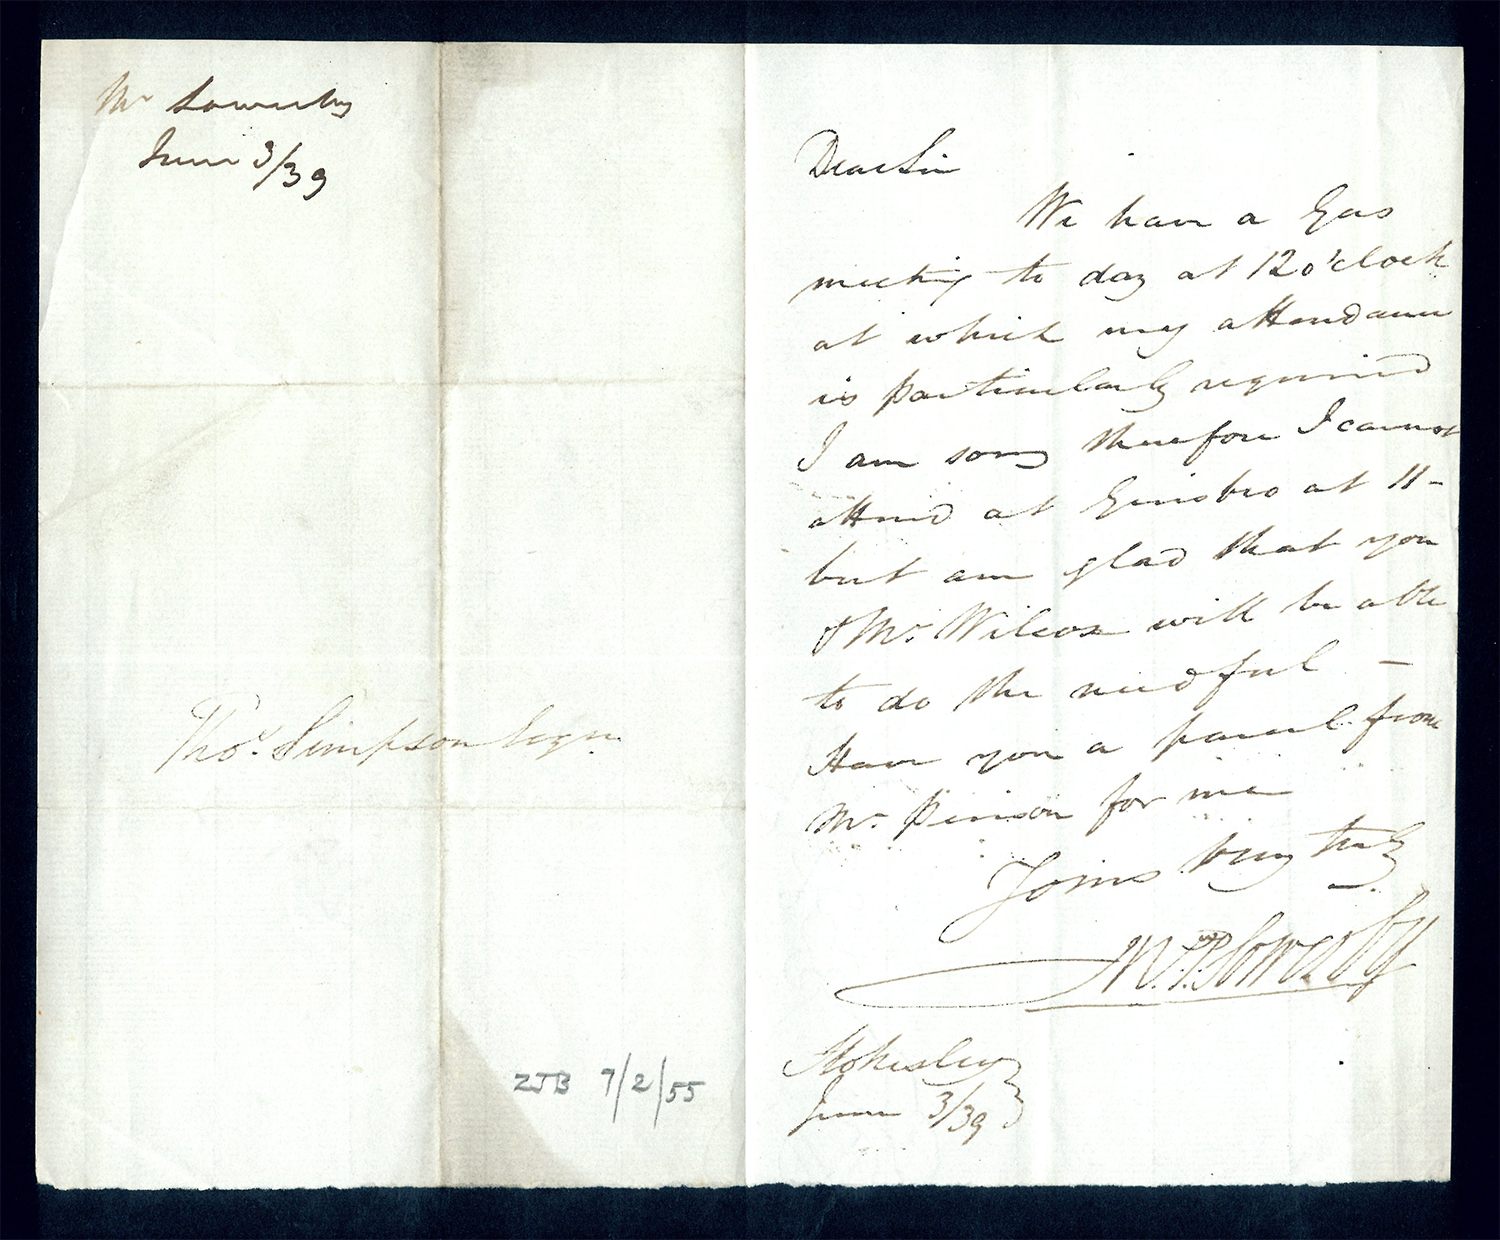 Mr Sowerby
June 3/39
Thos. Simpson Esqre
ZJB 7/2/55
Dear Sir
We have a Gas
meeting to day at 12 o'clock
at which my attendance
is particularly required
I am sorry therefore I cannot
attend at Guisbro at 11 -
but am glad that you
& Mr. Wilcox will be able
to do the needful -
Have you a parcel from
Mr. Penson for me
Yours very truly
Wm. P. Sowerby
Stokesley
June 3/39